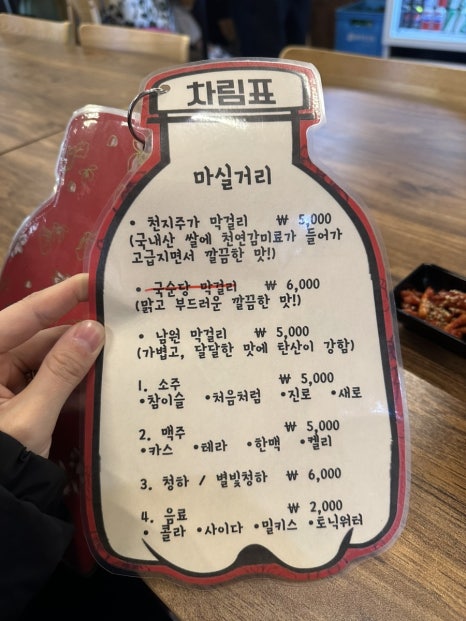 차림표
마실거리
• 천지주가 막걸리 ₩ 5,000
(국내산 쌀에 천연감미료가 들어가
고급지면서 깔끔한 맛!)
• 국순당 막걸리 ₩ 6,000
(맑고 부드러운 깔끔한 맛!)
• 남원 막걸리 ₩ 5,000
(가볍고, 달달한 맛에 탄산이 강함)
1. 소주 ₩ 5,000
•참이슬 •처음처럼 •진로 •새로
2. 맥주 ₩ 5,000
•카스 •테라 •한맥 •켈리
3. 청하 / 별빛청하 ₩ 6,000
4. 음료 ₩ 2,000
• 콜라 •사이다 •밀키스 •토닉워터